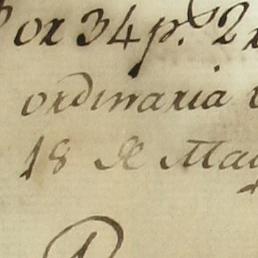 Por 34 p.s 2
ordinaria
18 de May